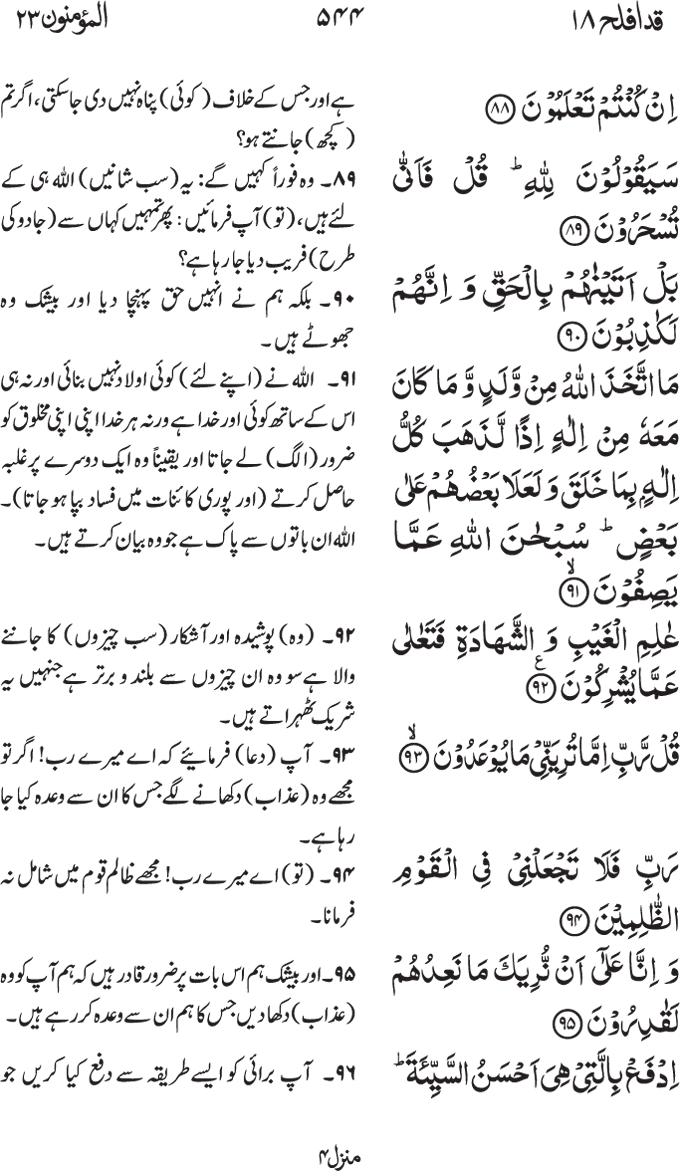 قدافلح ۱۸
۵۴۴
المؤمنون ۲۳
اِنۡ كُنۡتُمۡ تَعۡلَمُوۡنَ ﴿۸۸﴾
سَيَقُوۡلُوۡنَ لِلّٰهِ ؕ قُلۡ فَاَنّٰى
تُسۡحَرُوۡنَ ﴿۸۹﴾
بَلۡ اَتَيۡنٰهُمۡ بِالۡحَقِّ وَ اِنَّهُمۡ
لَكٰذِبُوۡنَ ﴿۹۰﴾
مَا اتَّخَذَ اللّٰهُ مِنۡ وَّلَدٍ وَّ مَا كَانَ
مَعَهٗ مِنۡ اِلٰهٍ اِذًا لَّذَهَبَ كُلُّ
اِلٰهٍۭ بِمَا خَلَقَ وَ لَعَلَا بَعۡضُهُمۡ عَلٰى
بَعۡضٍ ؕ سُبۡحٰنَ اللّٰهِ عَمَّا
يَصِفُوۡنَ ﴿ۙ۹۱﴾
عٰلِمِ الۡغَيۡبِ وَ الشَّهَادَةِ فَتَعٰلٰى
عَمَّا يُشۡرِكُوۡنَ ﴿۹۲﴾ ع
قُلۡ رَّبِّ اِمَّا تُرِيَنِّىۡ مَا يُوۡعَدُوۡنَ ﴿ۙ۹۳﴾
رَبِّ فَلَا تَجۡعَلۡنِىۡ فِى الۡقَوۡمِ
الظّٰلِمِيۡنَ ﴿۹۴﴾
وَ اِنَّا عَلٰٓى اَنۡ نُّرِيَكَ مَا نَعِدُهُمۡ
لَقٰدِرُوۡنَ ﴿۹۵﴾
اِدۡفَعۡ بِالَّتِىۡ هِىَ اَحۡسَنُ السَّيِّئَةَ ؕ
ہے اور جس کے خلاف (کوئی) پناہ نہیں دی جا سکتی، اگر تم
(کچھ) جانتے ہو؟
۸۹۔ وہ فوراً کہیں گے: یہ (سب شانیں) اللہ ہی کے
لئے ہیں، (تو) آپ فرمائیں: پھر تمہیں کہاں سے (جادو کی
طرح) فریب دیا جا رہا ہے؟
۹۰۔ بلکہ ہم نے انہیں حق پہنچا دیا اور بیشک وہ
جھوٹے ہیں۔
۹۱۔ اللہ نے (اپنے لئے) کوئی اولاد نہیں بنائی اور نہ ہی
اس کے ساتھ کوئی اور خدا ہے ورنہ ہر خدا اپنی اپنی مخلوق کو
ضرور (الگ) لے جاتا اور یقیناً وہ ایک دوسرے پر غلبہ
حاصل کرتے (اور پوری کائنات میں فساد بپا ہو جاتا)۔
اللہ ان باتوں سے پاک ہے جو وہ بیان کرتے ہیں۔
۹۲۔ (وہ) پوشیدہ اور آشکار (سب چیزوں) کا جاننے
والا ہے سو وہ ان چیزوں سے بلند و برتر ہے جنہیں یہ
شریک ٹھہراتے ہیں۔
۹۳۔ آپ (دعا) فرمائیے کہ اے میرے رب! اگر تو
مجھے وہ (عذاب) دکھانے لگے جس کا ان سے وعدہ کیا جا
رہا ہے۔
۹۴۔ (تو) اے میرے رب! مجھے ظالم قوم میں شامل نہ
فرمانا۔
۹۵۔ اور بیشک ہم اس بات پر ضرور قادر ہیں کہ ہم آپ کو وہ
(عذاب) دکھا دیں جس کا ہم ان سے وعدہ کر رہے ہیں۔
۹۶۔ آپ برائی کو ایسے طریقہ سے دفع کیا کریں جو
منزل ۴